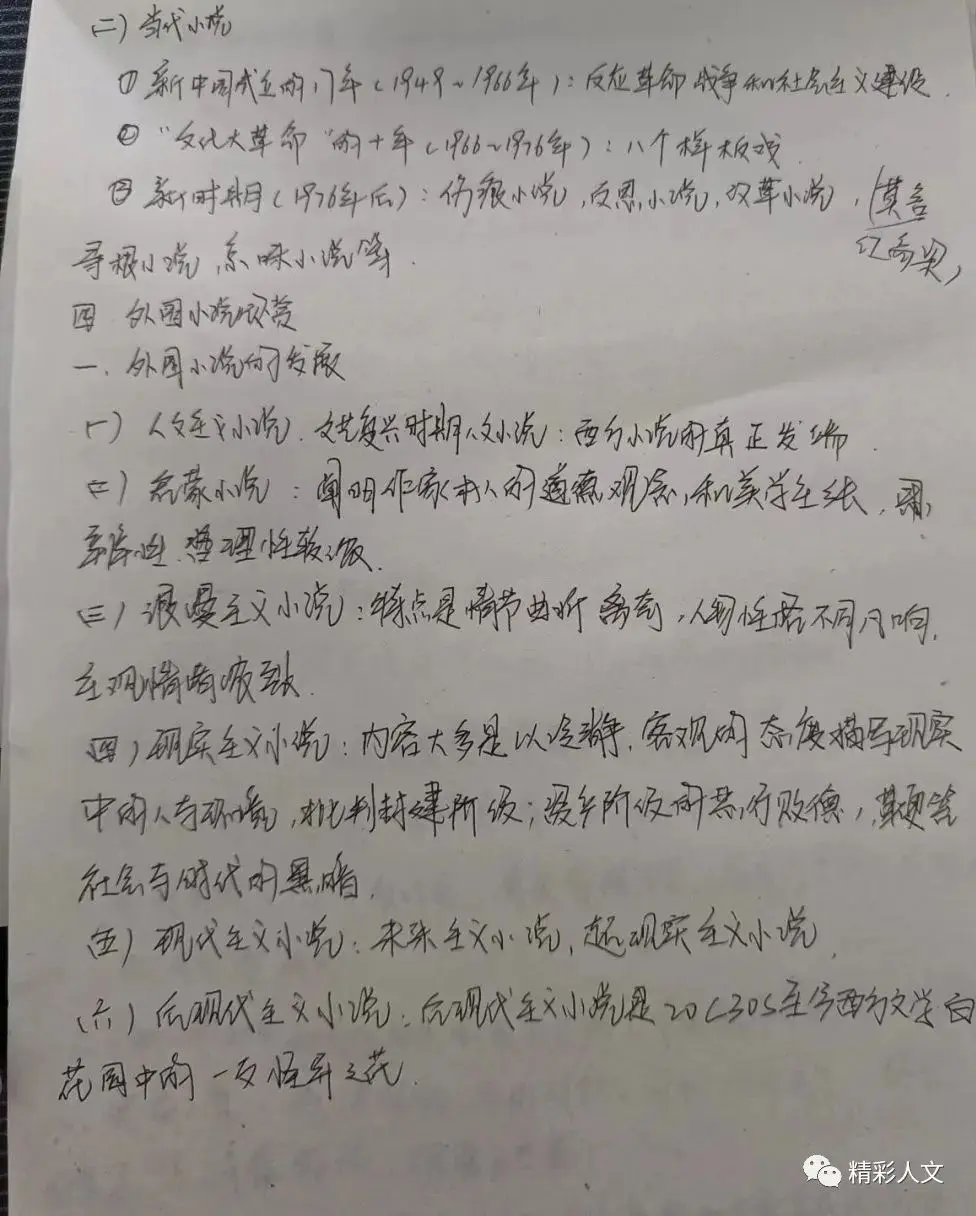 (二) 当代小说
① 新中国成立的17年(1949~1966年): 反应革命战争和社会主义建设.
② "文化大革命"的十年(1966~1976年): 八个样板戏
③ 新时期(1976年后): 伤痕小说, 反思小说, 改革小说, (莫言
红高粱,
寻根小说, 小说等.
四 外国小说欣赏
一. 外国小说的发展
(一) 人文主义小说. 文艺复兴时期人文小说: 西方小说的真正发端.
(二) 启蒙小说: 阐明作家本人的道德观念, 和美学主张,
哲理性较浓.
(三) 浪漫主义小说: 特点是情节曲折离奇, 人物性格不同凡响,
主观情绪浓烈.
(四) 现实主义小说: 内容大多是以冷静, 客观的态度描写现实
中的人与环境, 批判封建阶级; 资产阶级的恶行败德, 鞭笞
社会与时代的黑暗.
(五) 现代主义小说: 未来主义小说, 超现实主义小说
(六) 后现代主义小说. 后现代主义小说是20C30S至今西方文学百
花园中的一支怪异之花.
精彩人文